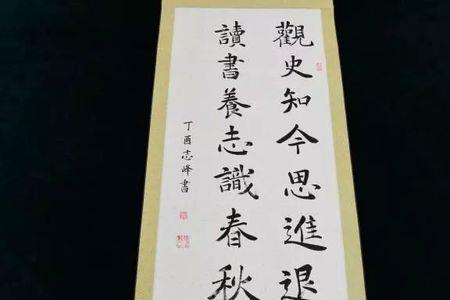 觀史知今思進退
讀書養志識春秋
丁酉志峰書